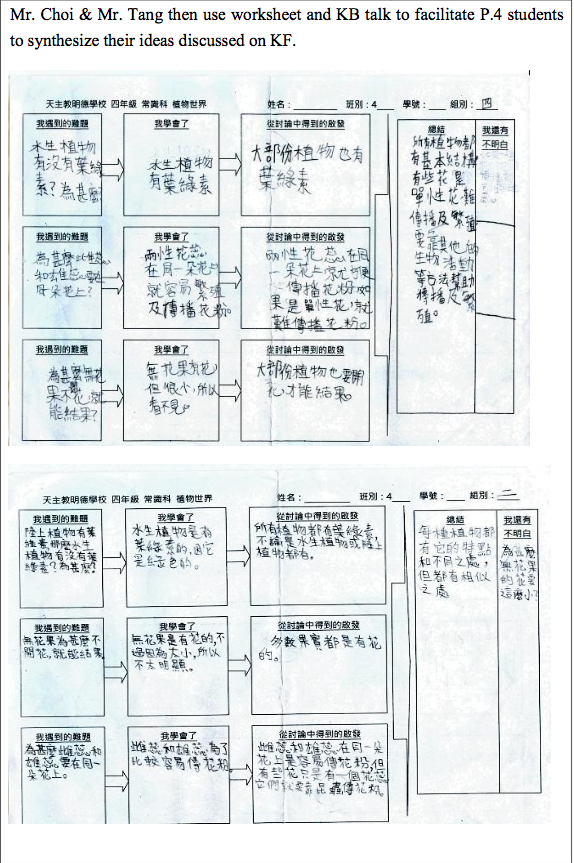 Mr. Choi & Mr. Tang then use worksheet and KB talk to facilitate P.4 students
to synthesize their ideas discussed on KF.
天主教明德學校 四年級 常識科 植物世界 姓名：________ 班別：4___ 學號：___ 組別：四
我遇到的難題
水生植物
有沒有葉綠
素？為甚麼？
我學會了
水生植物
有葉綠素
從討論中得到的啟發
大部份植物也有
葉綠素
我遇到的難題
為甚麼雌蕊
和雄蕊要在同
一朵花上？
我學會了
兩性花蕊
在同一朵花上
就容易繁殖
及傳播花粉。
從討論中得到的啟發
兩性花蕊在同
一朵花上常方便
傳播花粉如
果是單性花就
難傳播花粉。
我遇到的難題
為甚麼無花
果不花就
能結果？
我學會了
無花果有花
但很小，所以
看不見。
從討論中得到的啟發
大部份植物也要開
花才能結果。
總結
所有植物都
有基本結構
有些花是
單性花難
傳播及繁殖
要靠其他的
生物活動
等方法幫助
傳播及繁
殖。
我還有
不明白
天主教明德學校 四年級 常識科 植物世界 姓名：________ 班別：4___ 學號：___ 組別：二
我遇到的難題
陸上植物有葉
綠素那麼水生
植物有沒有葉
綠素？為甚麼？
我學會了
水生植物是有
葉綠素的，因它
是綠色的。
從討論中得到的啟發
所有植物都有葉綠素，
不論是水生植物或陸上
植物都有。
我遇到的難題
無花果為甚麼不
開花，就能結果
我學會了
無花果是有花的，不
過因為太小，所以
不太明顯。
從討論中得到的啟發
多數果實都是有花
的。
我遇到的難題
為甚麼雌蕊和
雄蕊要在同一
朵花上。
我學會了
雌蕊和雄蕊為了
比較容易傳花粉
從討論中得到的啟發
雌蕊和雄蕊在同一朵
花上是容易傳花粉，但
有些花只是有一個花蕊
它們就要靠昆蟲傳花粉
總結
每種植物都
有它的特點
和不同之處，
但都有相似
之處
我還有
不明白
為甚麼
無花果
的花要
這麼小？